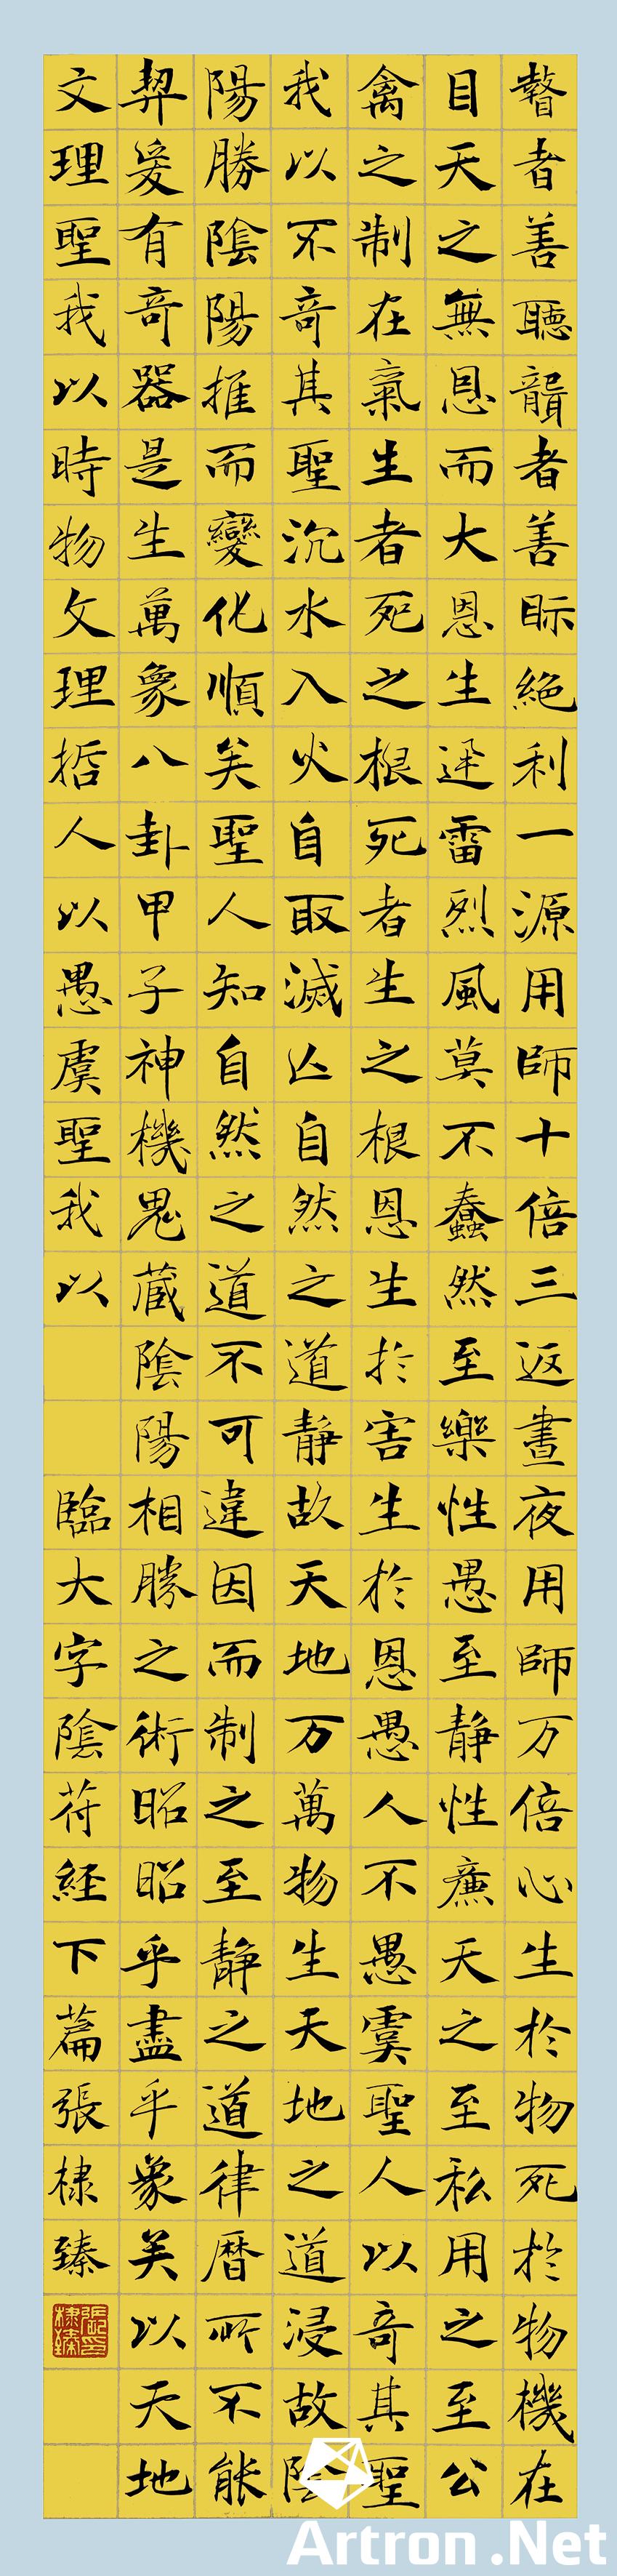 瞽者善聽聾者善眎絶利一源用師十倍三返晝夜用師万倍心生於物死於物機在
目天之無恩而大恩生迅雷烈風莫不蠢然至樂性愚至静性廉天之至私用之至公
禽之制在氣生者死之根死者生之根恩生於害生於恩愚人不愚虞聖人以奇其聖
我以不奇其聖沉水入火自取滅亡自然之道静故天地万萬物生天地之道浸故陰
陽勝陰陽推而變化順矣聖人知自然之道不可違因而制之至静之道律曆所不能
契爰有奇器是生萬象八卦甲子神機鬼藏陰陽相勝之術昭昭乎盡乎象矣以天地
文理聖我以時物文理哲人以愚虞聖我以
臨大字陰符経下萹張棣臻
Artron.Net